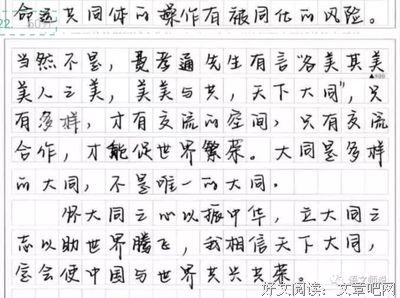 命运共同体的操作有被同化的风险。
22.
当然不是，费孝通先生有言"各美其美
美人之美，美美与共，天下大同"，只
▲800
有多样，才有交流的空间，只有交流
合作，才能促世界繁荣。大同是多样
的大同，不是唯一的大同。
怀大同之心以振中华，立大同之
志以助世界腾飞，我相信天下大同，
定会使中国与世界共兴共荣。
好文阅读：文章吧网